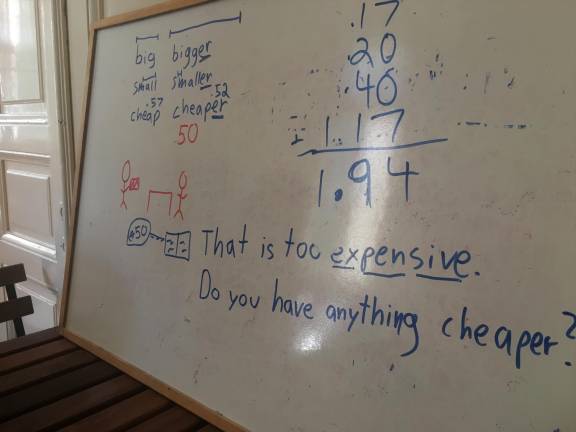 big bigger
small smaller
.57 .52
cheap cheaper
50
.17
.20
.40
1.17
1.94
50
That is too expensive.
Do you have anything cheaper?